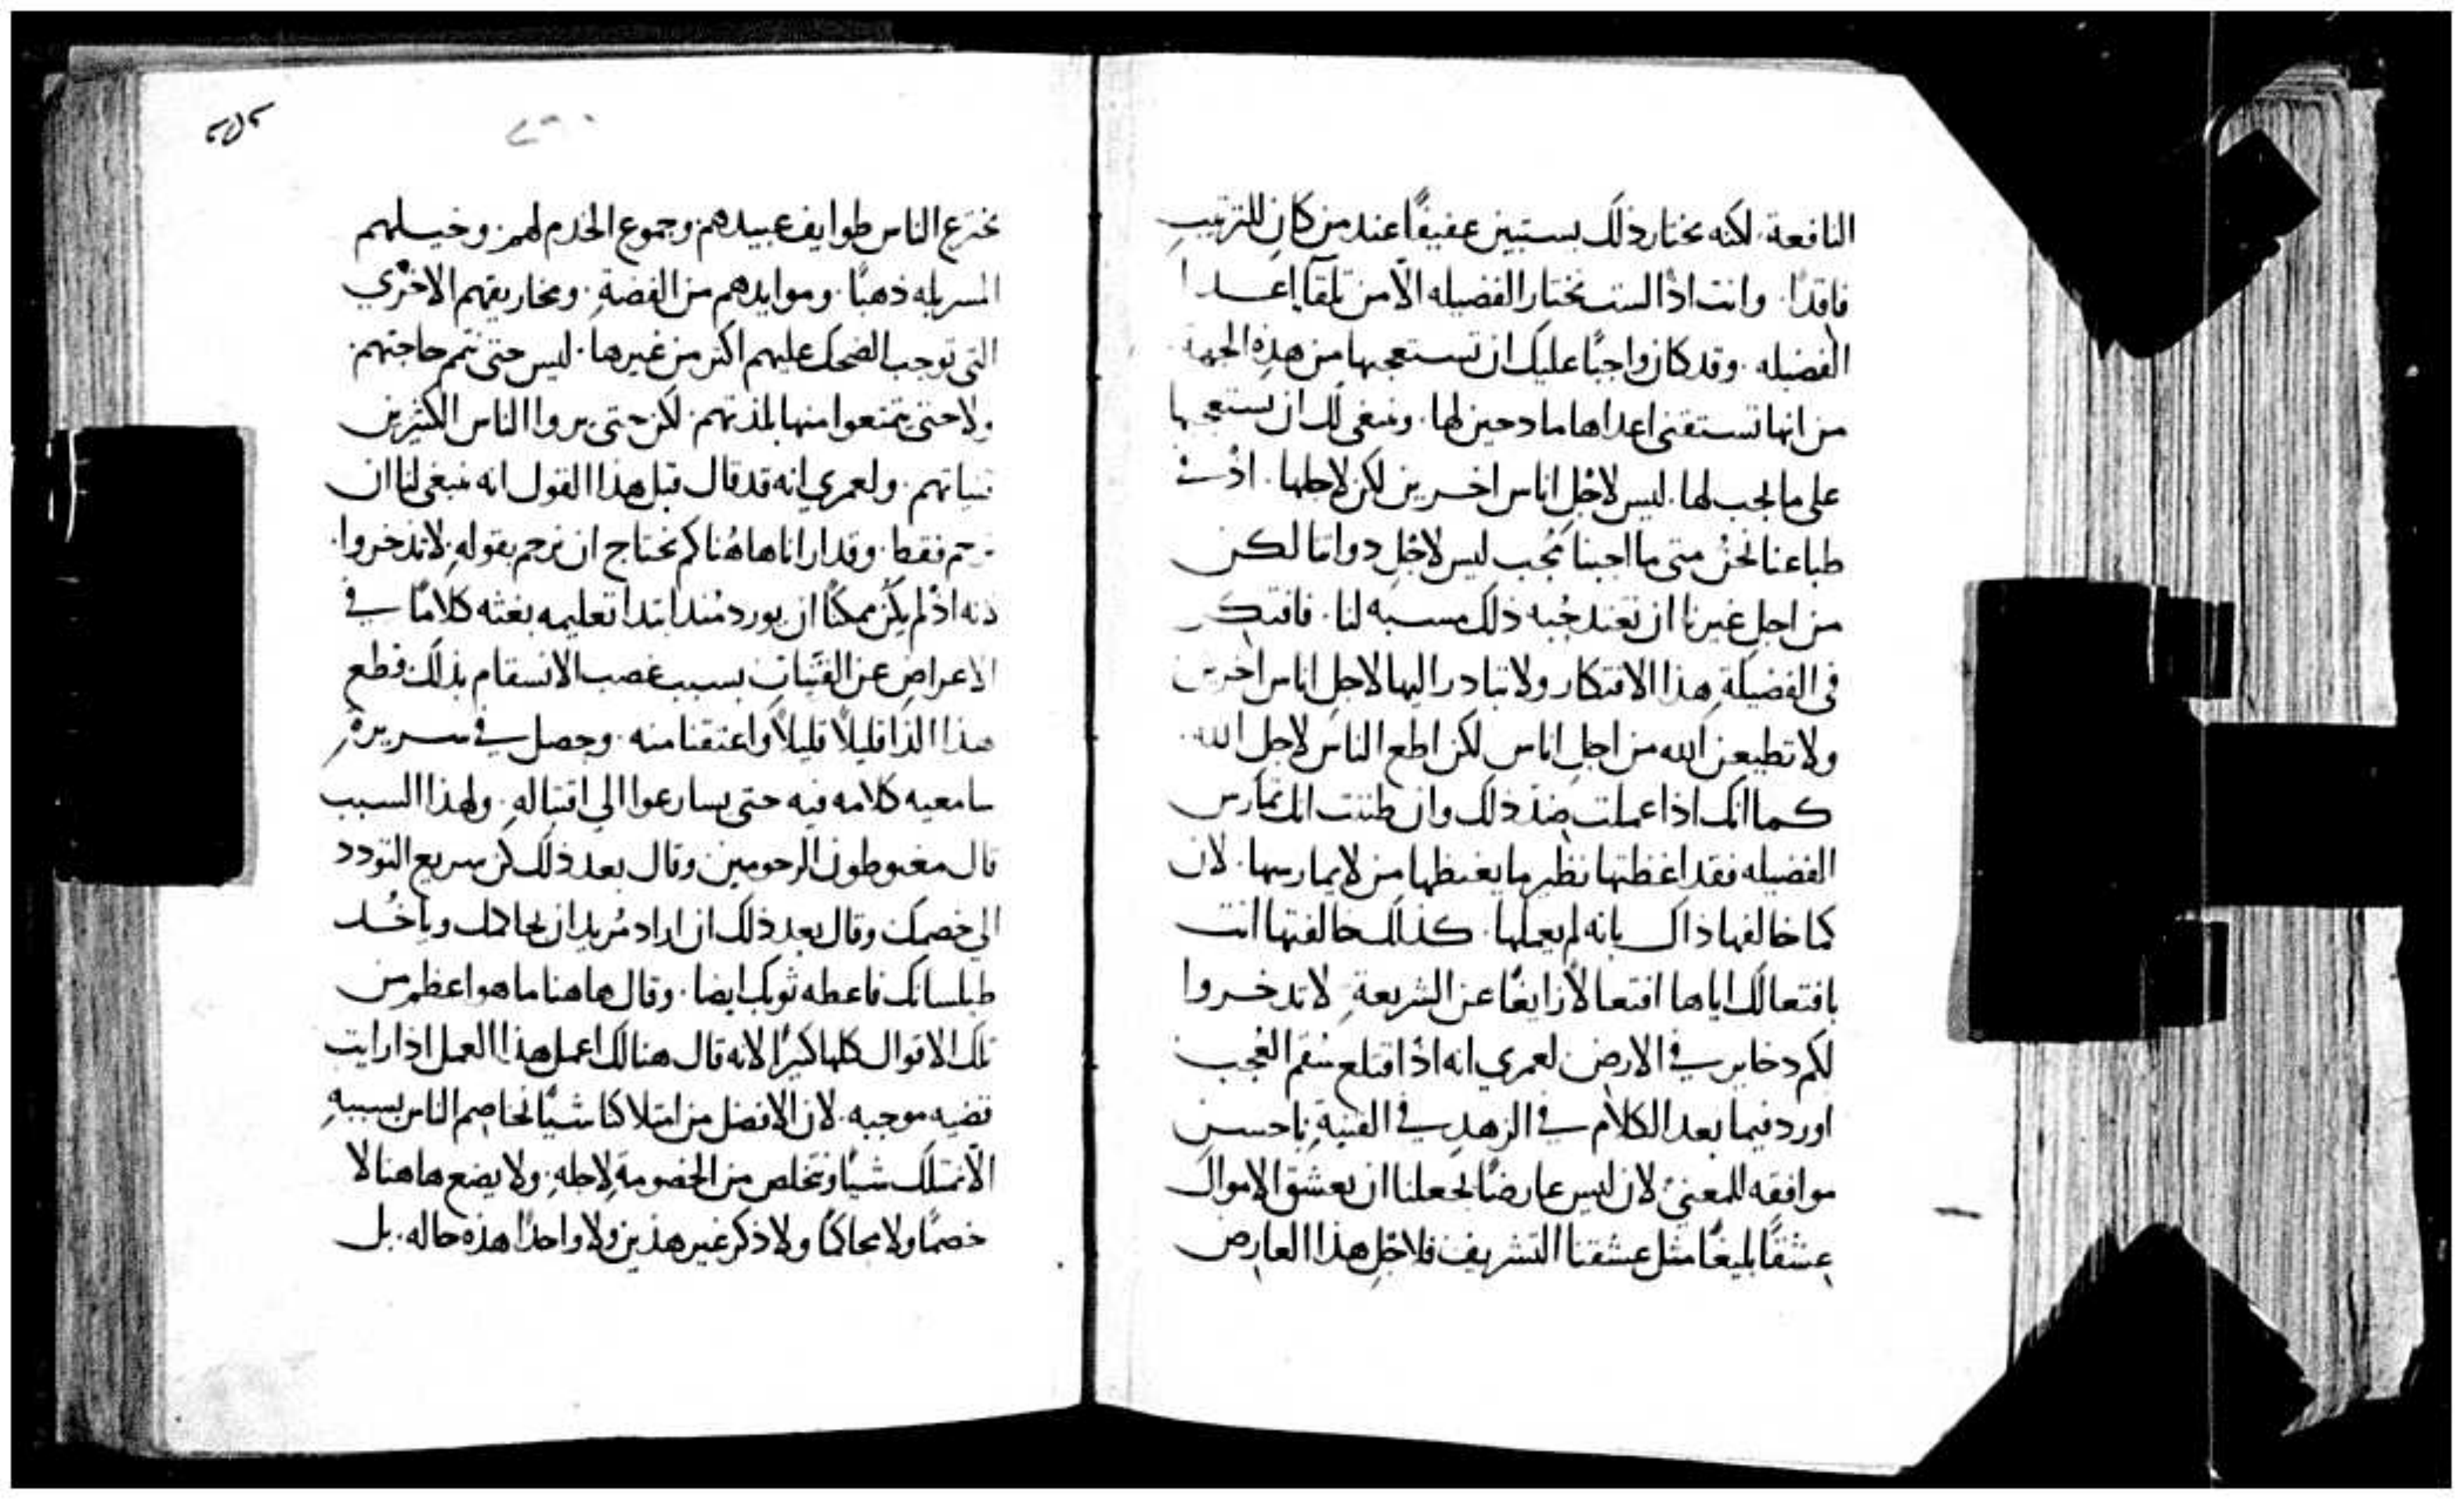 النافعة. لكنه يختار ذلك يستبين عفيفًا عند من كان للترتيب
فاقدًا. وانت اذا لست تختار الفضيله الا من تلقآ اعدا
الفضيله. وقد كان واجبًا عليك ان تستعجبها من هذه الجهة
من انها تستقني اعداها مادحين لها. وينبغي لك ان تستعجبها
على ما يجب لها. ليس لاجل اناس اخرين لكن لاجلها. اذ
طباعنا نحن متى ما احبنا مُحب ليس لاجل ذواتنا لكن
من اجل غيرنا ان نعتد حُبه ذلك مسبه لنا. فافتكر
في الفضيلةِ هذا الافتكار ولا تبادر اليها لاجل اناس اخرين
ولا تطيعن الله من اجل اناس لكن اطع الناس لاجل الله.
كما انك اذا عملت ضد ذلك وان ظننت انك تمارس
الفضيله فقد اغظتها نظير ما يغيظها من لا يمارسها. لان
كما خالفها ذاك بانه لم يعملها. كذلك خالفتها انت
بافتعالك اياها افتعالاً زايغًا عن الشريعةِ لا تدخروا
لكم دخاير في الارض لعمري انه اذ اقتلع سُقم العُجب
اورد فيما بعد الكلام في الزهد في القنيةِ باحسن
موافقه للمعنى لان ليس عارضًا يجعلنا ان نعشق الاموال
عشقًا بليغًا مثل عشقنا التشريف فلاجل هذا العارض
يخترع الناس طوايف عبيدهم وجموع الخدم لهم. وخيلهم
المسربله ذهبًا. وموايدهم من الفضةِ. ومخاريقهم الاخرى
التى توجب الضحك عليهم اكثر من غيرها. ليس حتى تتم حاجتهم.
ولا حتى يتمتعوا منها بلذتهم. لكن حتى يروا الناس الكثيرين
قنياتهم. ولعمري انه قد قال قبل هذا القول انه ينبغي لنا ان
نرحم فقط. وقد ارانا هاهُنا كم نحتاج ان نرحم بقولهِ لا تدخروا.
لانه اذ لم يكن ممكنًا ان يورد منذ ابتدا تعليمه بغته كلامًا في
الاعراض عن القنيات بسبب غصب الانسقام بذلك قطع
هذا الدا قليلاً قليلاً واعتقنا منه. وحصل في سريرة
سامعيه كلامه فيه حتى يسارعوا الي اقتبالهِ. ولهذا السبب
قال مغبوطون الرحومين وقال بعد ذلك كن سريع التودد
الي خصمك وقال بعد ذلك ان اراد مُريد ان يحاكمك وياخُد
طيلسانك فاعطه ثوبك ايضا. وقال هاهنا ما هو اعظم من
تلك الاقوال كلها كثيرًا لانه قال هنالك اعمل هذا العمل اذا رايت
قضيه موجبه. لان الافضل من امتلاكنا شيًا نخاصم الناس بسببهِ
الا نمتلك شيًا ونتخلص من الخصومةِ لاجلهِ. ولا يضع هاهنا لا
خصمًا ولا محاكمًا ولا ذكر غير هذين ولا واحدًا هذه حاله. بل